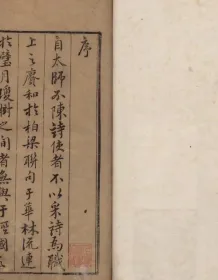 序
自太師不陳詩使者不以采詩爲職
上之賡和於柏梁聯句于華林流連
於璧月瓊樹之間者無與于經國